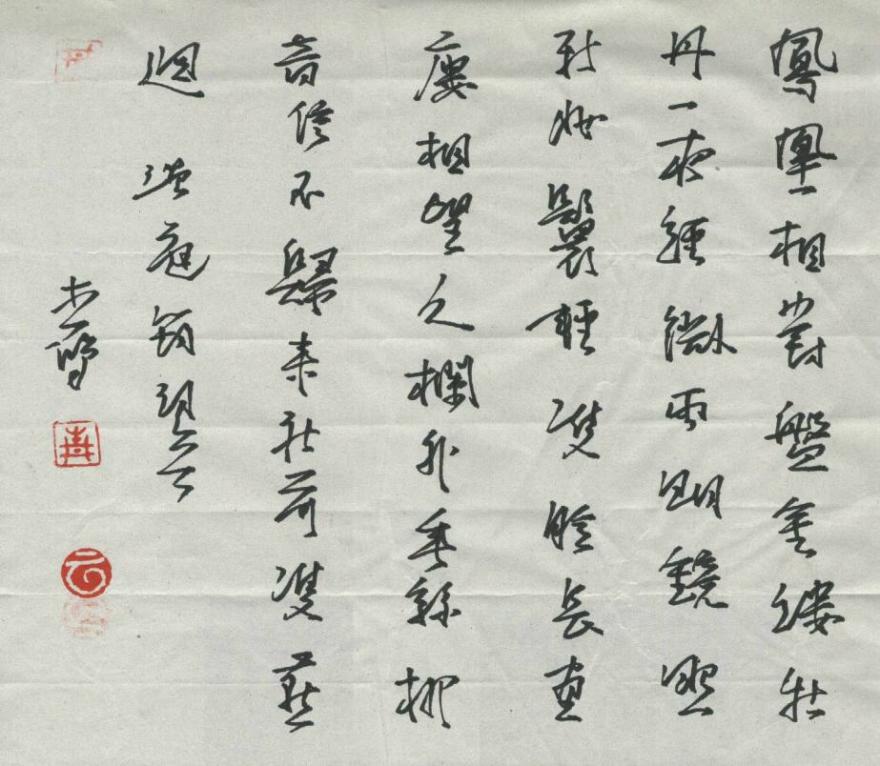 鳳凰相對盤金縷牡
丹一夜經微雨明鏡照
新妝鬢輕雙臉長畫
廔相望久欄外垂絲柳
音信不歸來社前雙燕
迴 溫庭筠